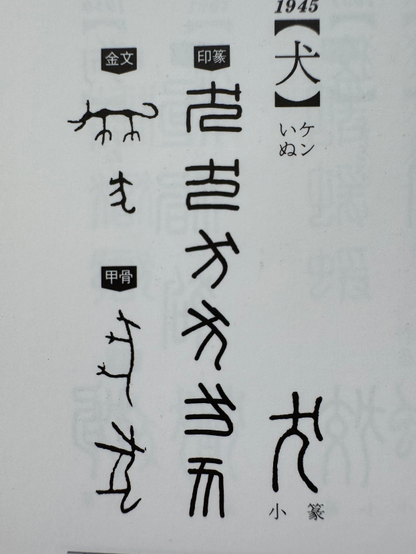 1945
【犬】
ケン
いぬ
小篆
印篆
金文
甲骨